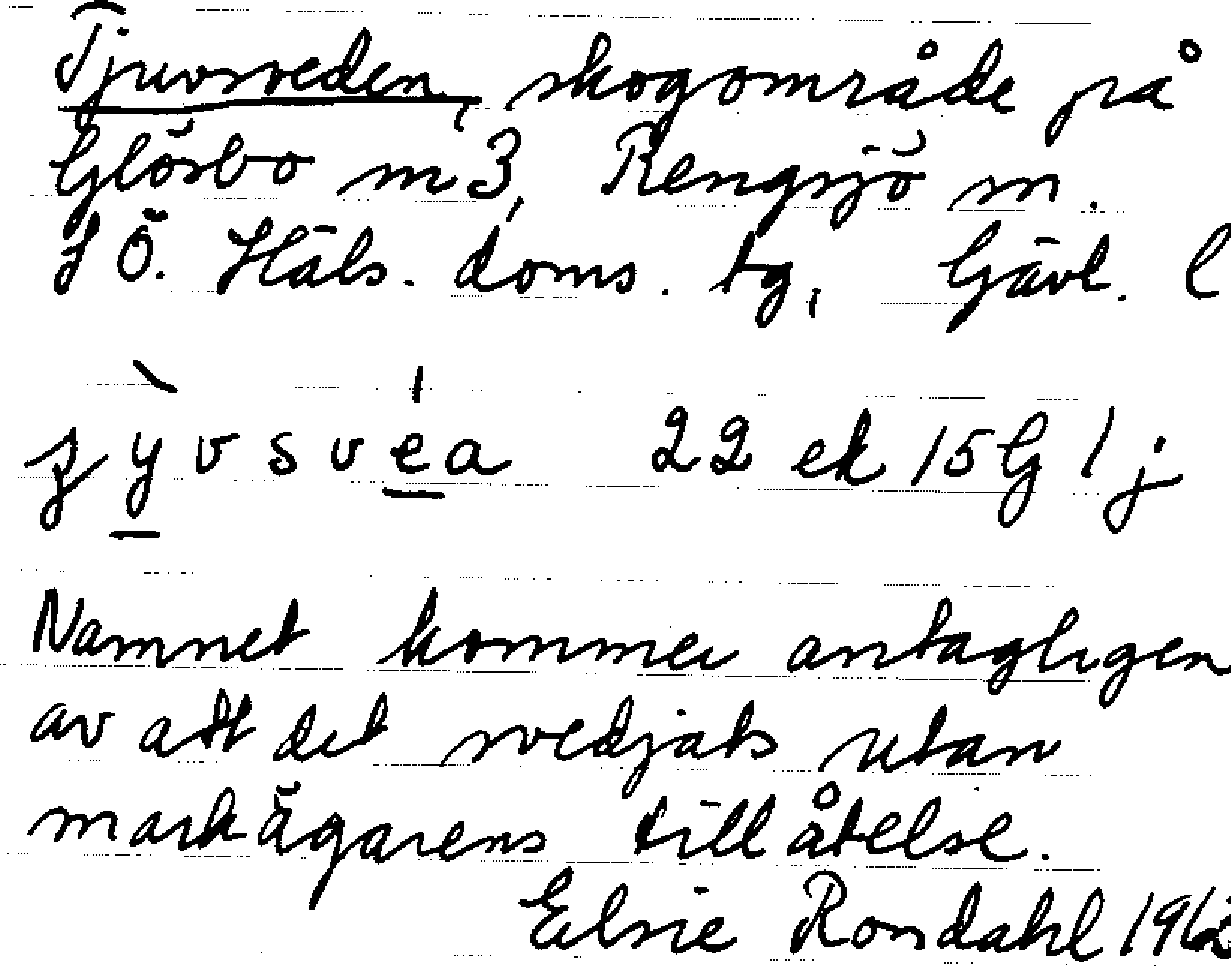 Tjuvsveden, skogområde på
Glösbo m 3, Rengsjö sn.
S Ö. Häls. doms. tg, Gävl. l
y v s v e a 22 ek 15 G l j
Namnet kommer antagligen
av att det svedjats utan
markägarens tillåtelse.
Elsie Rondahl 1962